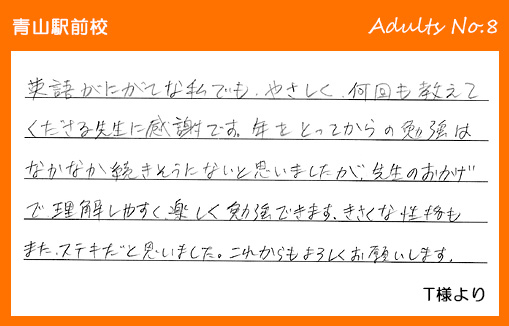 青山駅前校
Adults No.8
英語がにがてな私でも、やさしく、何回も教えて
くださる先生に感謝です。年をとってからの勉強は
なかなか続きそうにないと思いましたが、先生のおかげ
で理解しやすく、楽しく勉強できます。きさくな性格も
また、ステキだと思いました。これからもよろしくお願いします。
T様より